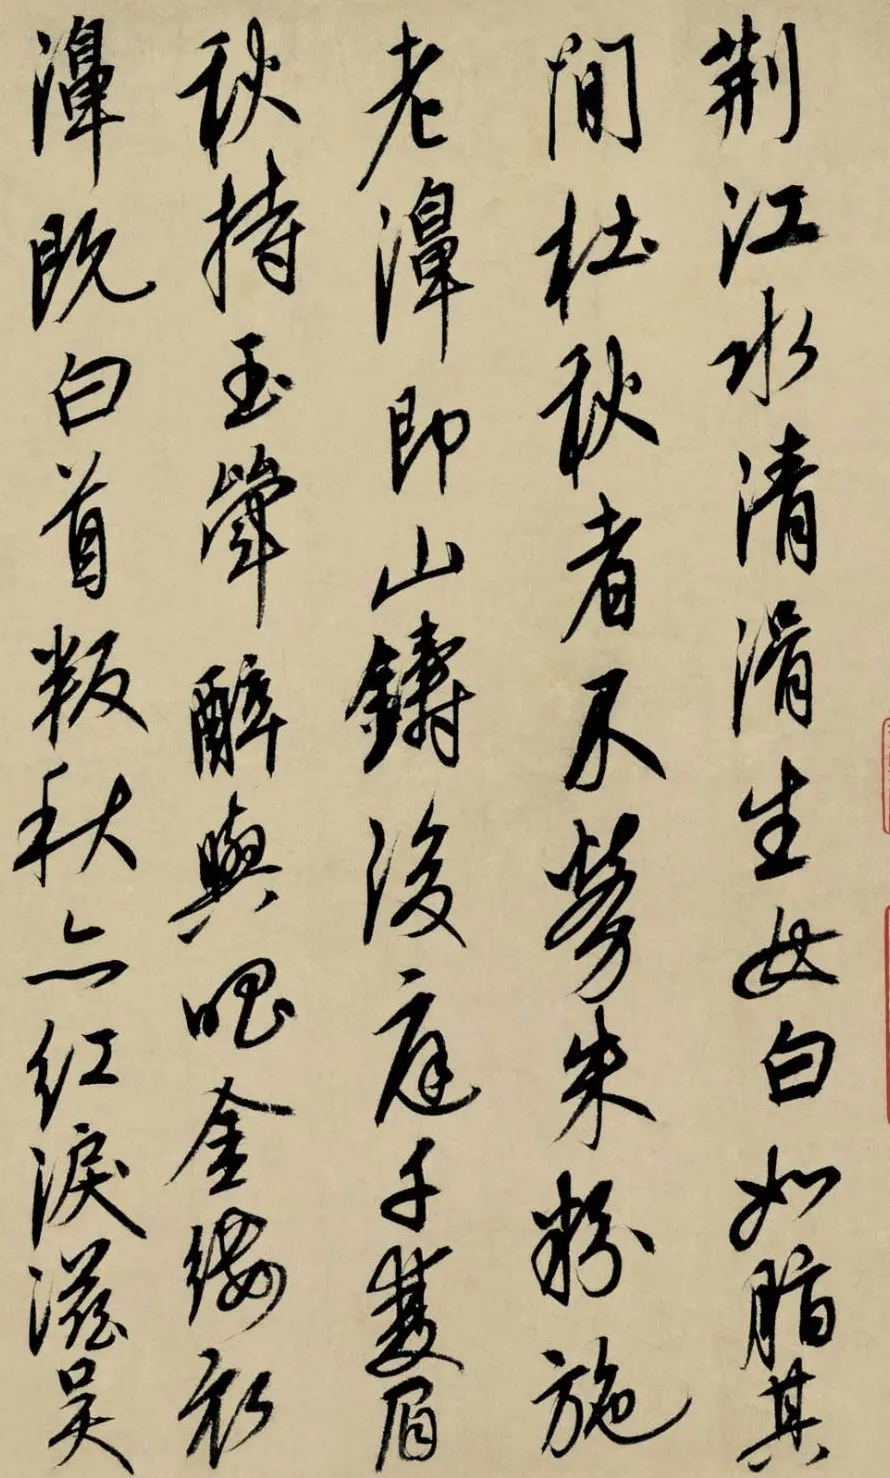 荆江水清滑生女白如脂其
間杜秋者不勞朱粉施
老濞即山鑄後庭千雙眉
秋持玉斝醉與唱金縷衣
濞既白首叛秋亦紅淚滋吳